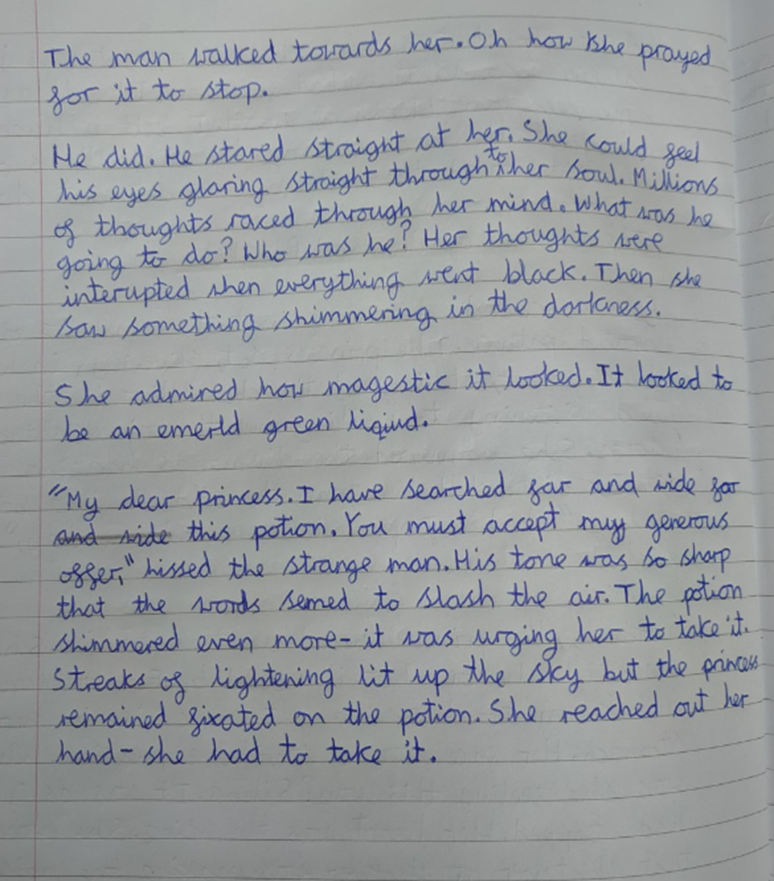 The man walked towards her. Oh how she prayed
for it to stop.
He did. He stared straight at her. She could feel
his eyes glaring straight through to her soul. Millions
of thoughts raced through her mind. What was he
going to do? Who was he? Her thoughts were
interupted when everything went black. Then she
saw something shimmering in the darkness.
She admired how magestic it looked. It looked to
be an emerld green liqiud.
"My dear princess. I have searched far and wide for
and wide this potion. You must accept my generous
offer," hissed the strange man. His tone was so sharp
that the words semed to slash the air. The potion
shimmered even more- it was urging her to take it.
Streaks of lightening lit up the sky but the princess
remained fixated on the potion. She reached out her
hand- she had to take it.